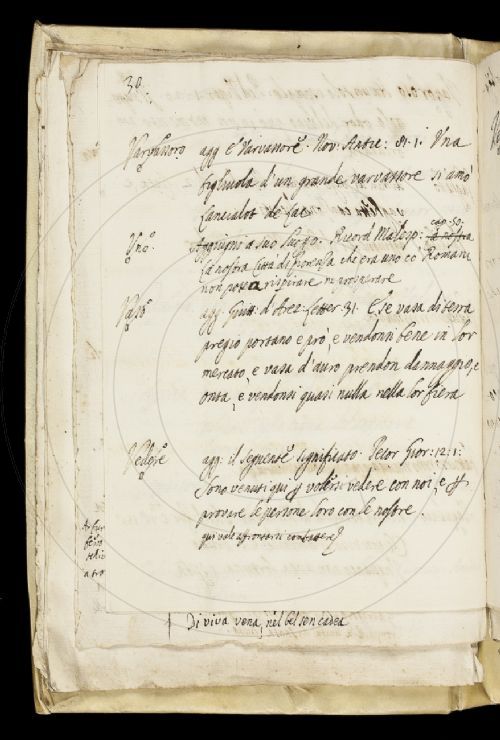 30.
Varvassoro agg. e Varvassore. Nov: Antic: 81. 1. Una
figliuola d'un grande varvassore si amò
Lancialot de Lac
Uno. aggiugni a suo luogo. Ricord Malesp: cap. 50.
La nostra Città di Fiorenza che era uno co Romani
non potea rispirare ne prosperare
Vaso agg. Guitt. d Arez. Letter. 31. E se vasa di terra
pregio portano e prò, e vendonsi bene in lor
mercato, e vasa d'auro prendon dannaggio, e
onta, e vendonsi quasi nulla nella lor fiera
Vedere agg. il seguente significato. Pecor Gior: 12. 1.
Sono venuti qui p volersi vedere con noi, e p
provare le persone loro con le nostre.
qui vale afrontarsi combattere
Di viva vena, nel bel sen cadea